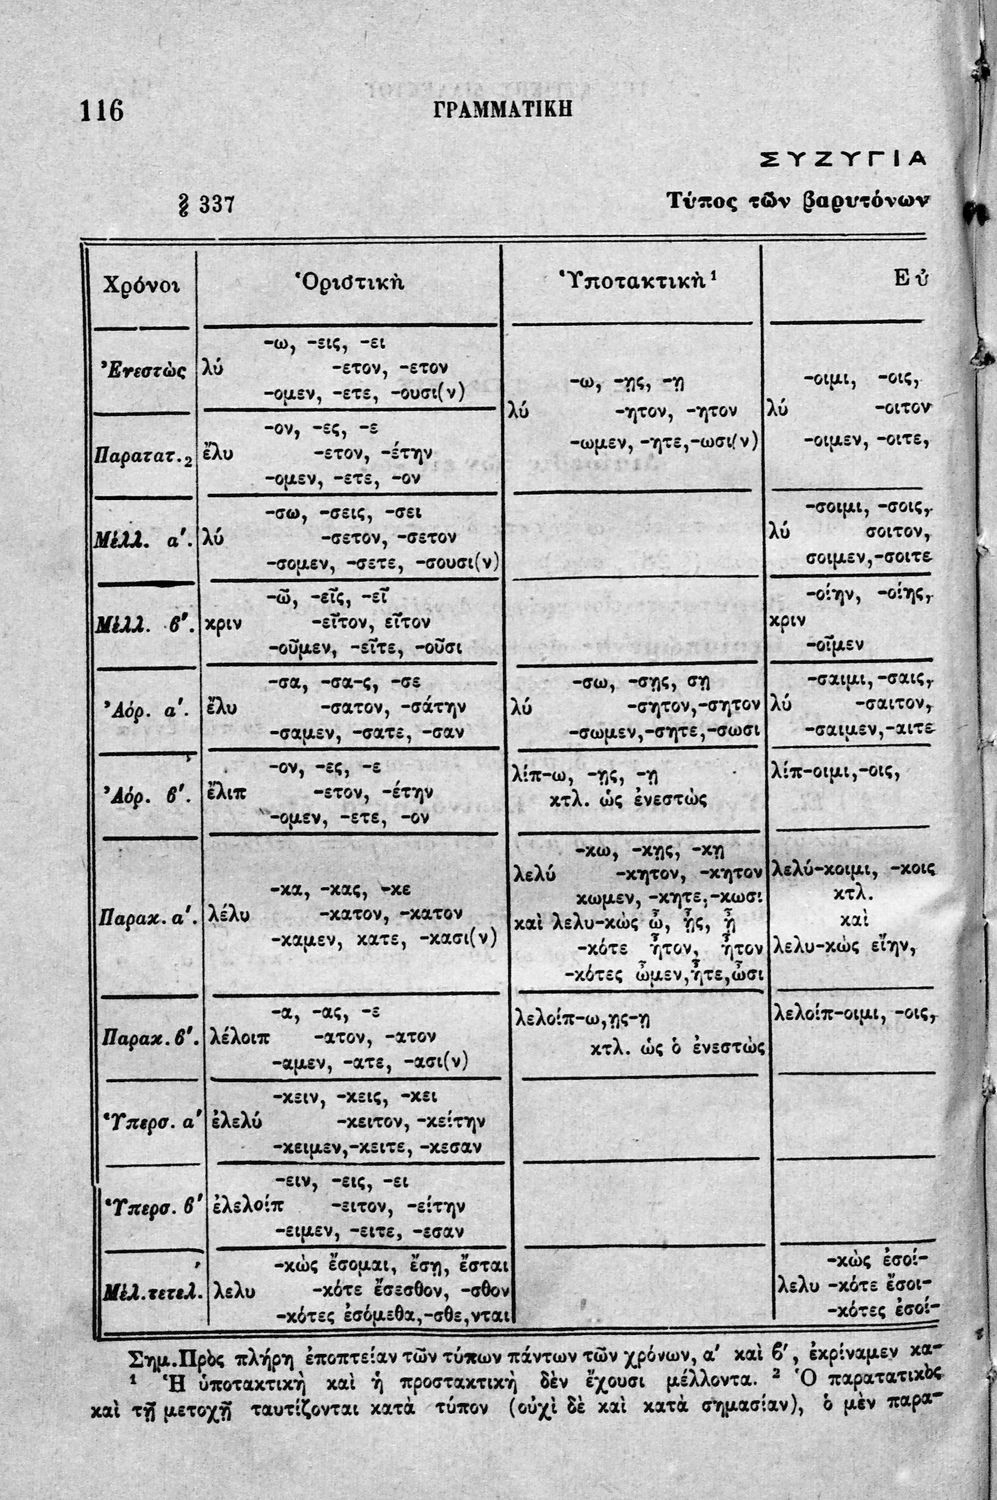 116 ΓΡΑΜΜΑΤΙΚΗ
ΣΥΖΥΓΙΑ
§ 337 Τύπος τῶν βαρυτόνων
Χρόνοι Ὁριστικὴ Ὑποτακτικὴ¹ Εὐ
Ἐνεστὼς
-ω, -εις, -ει
λύ -ετον, -ετον
-ομεν, -ετε, -ουσι(ν)
-ω, -ῃς, -ῃ
λύ -ητον, -ητον
-ωμεν, -ητε,-ωσι(ν)
-οιμι, -οις,
λύ -οιτον
-οιμεν, -οιτε,
Παρατατ.₂
-ον, -ες, -ε
ἔλυ -ετον, -έτην
-ομεν, -ετε, -ον
Μέλλ. α'.
-σω, -σεις, -σει
λύ -σετον, -σετον
-σομεν, -σετε, -σουσι(ν)
-σοιμι, -σοις,
λύ σοιτον,
σοιμεν,-σοιτε
Μέλλ. β'.
-ῶ, -εῖς, -εῖ
κριν -εῖτον, εῖτον
-οῦμεν, -εῖτε, -οῦσι
-οίην, -οίης,
κριν
-οῖμεν
Ἀόρ. α'.
-σα, -σα-ς, -σε
ἔλυ -σατον, -σάτην
-σαμεν, -σατε, -σαν
-σω, -σῃς, σῃ
λύ -σητον,-σητον
-σωμεν,-σητε,-σωσι
-σαιμι,-σαις,
λύ -σαιτον,
-σαιμεν,-αιτε
Ἀόρ. β'.
-ον, -ες, -ε
ἔλιπ -ετον, -έτην
-ομεν, -ετε, -ον
λίπ-ω, -ῃς, -ῃ
κτλ. ὡς ἐνεστὼς
λίπ-οιμι,-οις,
Παρακ. α'.
-κα, -κας, -κε
λέλυ -κατον, -κατον
-καμεν, κατε, -κασι(ν)
-κω, -κῃς, -κῃ
λελύ -κητον, -κητον
κωμεν, -κητε,-κωσι
καὶ λελυ-κὼς ὦ, ᾖς, ᾖ
-κότε ἦτον, ἦτον
-κότες ὦμεν,ἦτε,ὦσι
λελύ-κοιμι, -κοις
κτλ.
καὶ
λελυ-κὼς εἴην,
Παρακ. β'.
-α, -ας, -ε
λέλοιπ -ατον, -ατον
-αμεν, -ατε, -ασι(ν)
λελοίπ-ω,ῃς-ῃ
κτλ. ὡς ὁ ἐνεστὼς
λελοίπ-οιμι, -οις,
Ὑπερσ. α'
-κειν, -κεις, -κει
ἐλελύ -κειτον, -κείτην
-κειμεν,-κειτε, -κεσαν
Ὑπερσ. β'
-ειν, -εις, -ει
ἐλελοίπ -ειτον, -είτην
-ειμεν, -ειτε, -εσαν
Μέλ.τετελ.
-κὼς ἔσομαι, ἔσῃ, ἔσται
λελυ -κότε ἔσεσθον, -σθον
-κότες ἐσόμεθα,-σθε,νται
-κὼς ἐσοί-
λελυ -κότε ἔσοι-
-κότες ἐσοί-
Σημ.Πρὸς πλήρη ἐποπτείαν τῶν τύπων πάντων τῶν χρόνων, α' καὶ β', ἐκρίναμεν κα-
¹ Ἡ ὑποτακτικὴ καὶ ἡ προστακτικὴ δὲν ἔχουσι μέλλοντα. ² Ὁ παρατατικὸς
καὶ τῇ μετοχῇ ταυτίζονται κατὰ τύπον (οὐχὶ δὲ καὶ κατὰ σημασίαν), ὁ μὲν παρα-